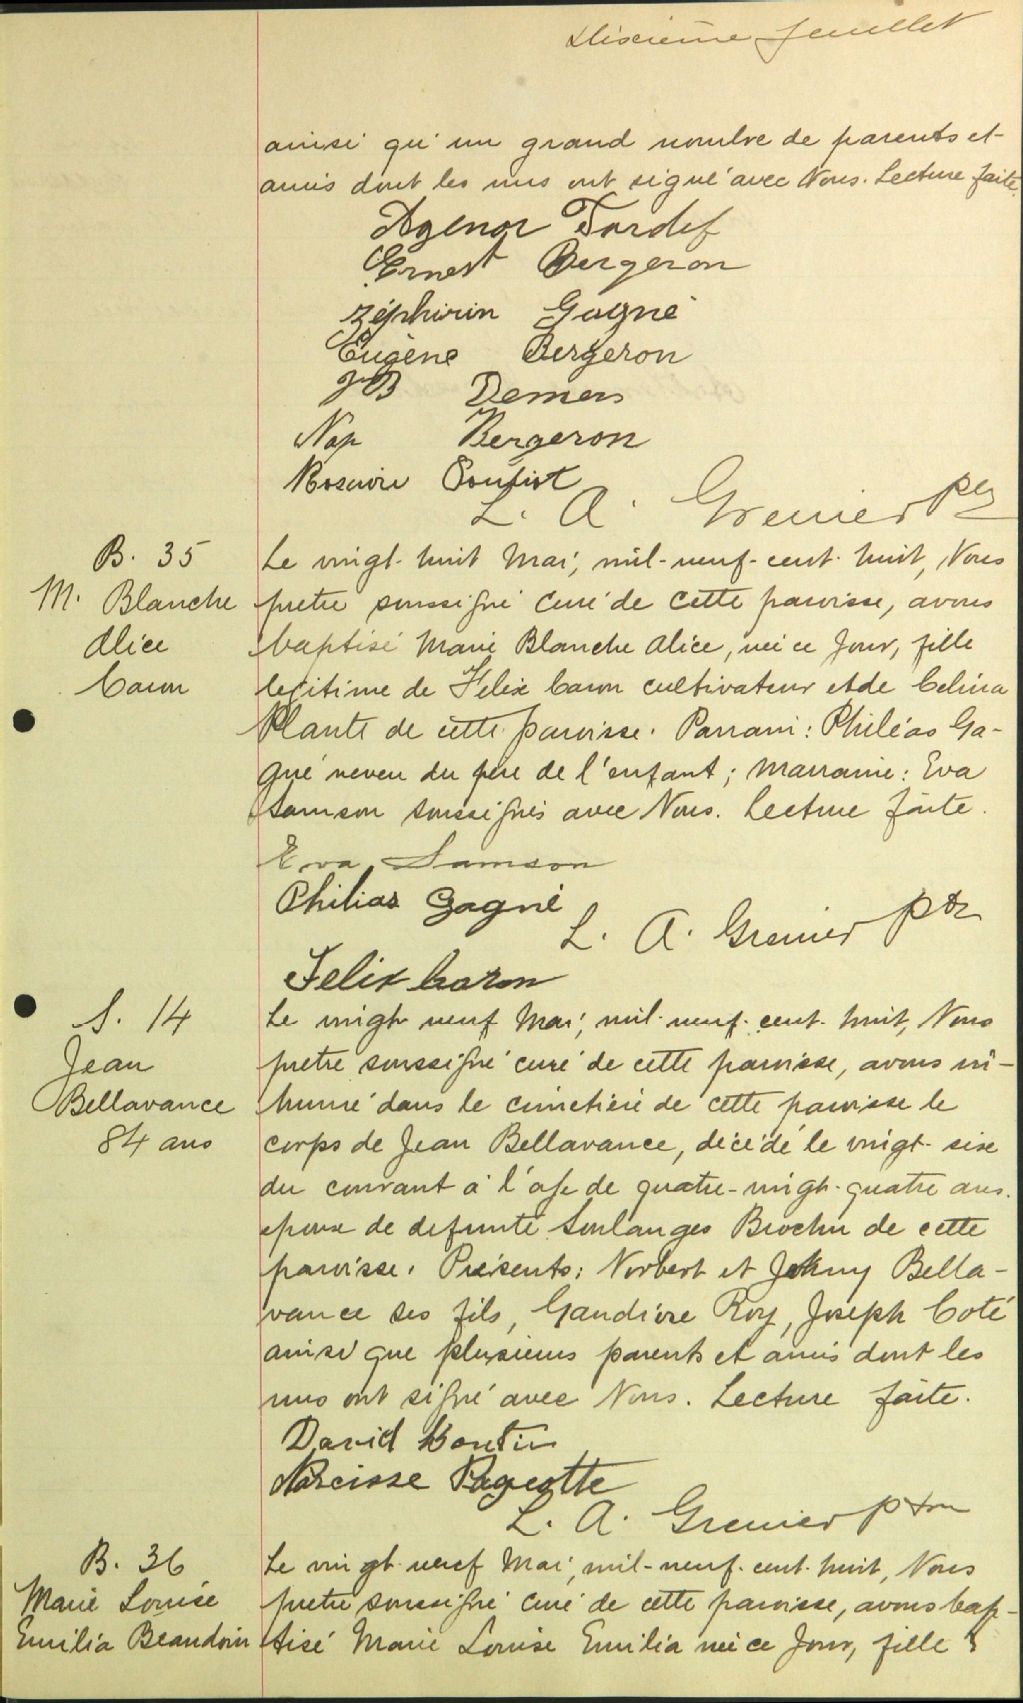 Dixième feuillet
ainsi qu'un grand nombre de parents et
amis dont les uns ont signé avec Nous. Lecture faite.
Agenor Tardif
Ernest Bergeron
Zéphirin Gagné
Eugène Bergeron
JB Demers
Nap Bergeron
Rosaire
L. A. Grenier ptre
B. 35
M. Blanche
Alice
Caron
Le vingt-huit Mai, mil-neuf-cent-huit, Nous
pretre soussigné curé de cette paroisse, avons
baptisé Marie Blanche Alice, née ce jour, fille
legitime de Félix Caron cultivateur et de Celina
Plante de cette paroisse. Parrain : Philéas Ga-
gné neveu du père de l'enfant ; marraine : Eva
Samson soussignés avec Nous. Lecture faite.
Eva Samson
Philias Gagné
L. A. Grenier ptr
Felix Caron
S. 14
Jean
Bellavance
84 ans
Le vingt neuf Mai, mil-neuf-cent-huit, Nous
pretre soussigné curé de cette paroisse, avons in-
humé dans le cimetière de cette paroisse le
corps de Jean Bellavance, décédé le vingt-six
du courant à l'age de quatre-vingt-quatre ans.
epoux de defunte Soulanges Brochu de cette
paroisse. Présents : Norbert et Johny Bella-
vance ses fils, Roy, Joseph Coté
ainsi que plusieurs parents et amis dont les
uns ont signé avec Nous. Lecture faite.
David Boutin
Narcisse Pageotte
L. A. Grenier ptre
B. 36
Marie Louise
Emilia Beaudoin
Le vingt-neuf Mai, mil-neuf-cent-huit, Nous
pretre soussigné curé de cette paroisse, avons bap-
tisé Marie Louise Emilia née ce jour, fille